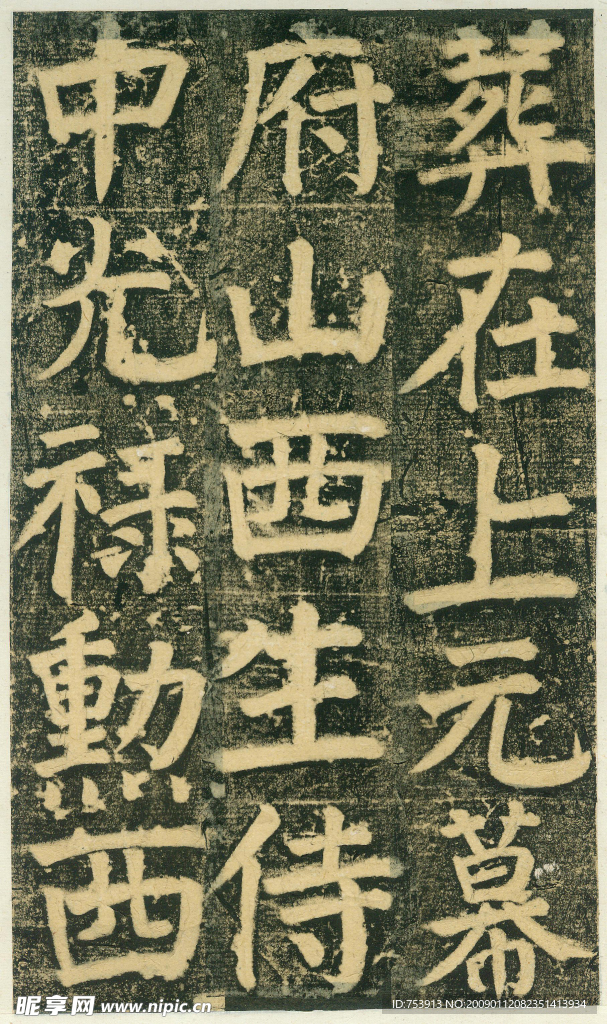 葬在上元幕
府山西生侍
中光禄勳西
昵享网 www.nipic.cn
ID:753913 NO:20090112082351413934